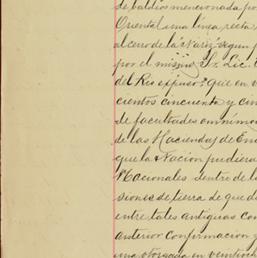 de baldíos mencionada por
Oriental una línea recta
al cerro de la Nariz segun
por el mismo Sr. Lic.
del Rio expuso: que en
cientos cincuenta y cin
de facultades omnímo
de las Haciendas de
que la Nacion pudiera
Nacionales dentro de l
siones de tierra de que d
entre tales antiguas con
anterior confirmacion y
una otorgada en veintioch